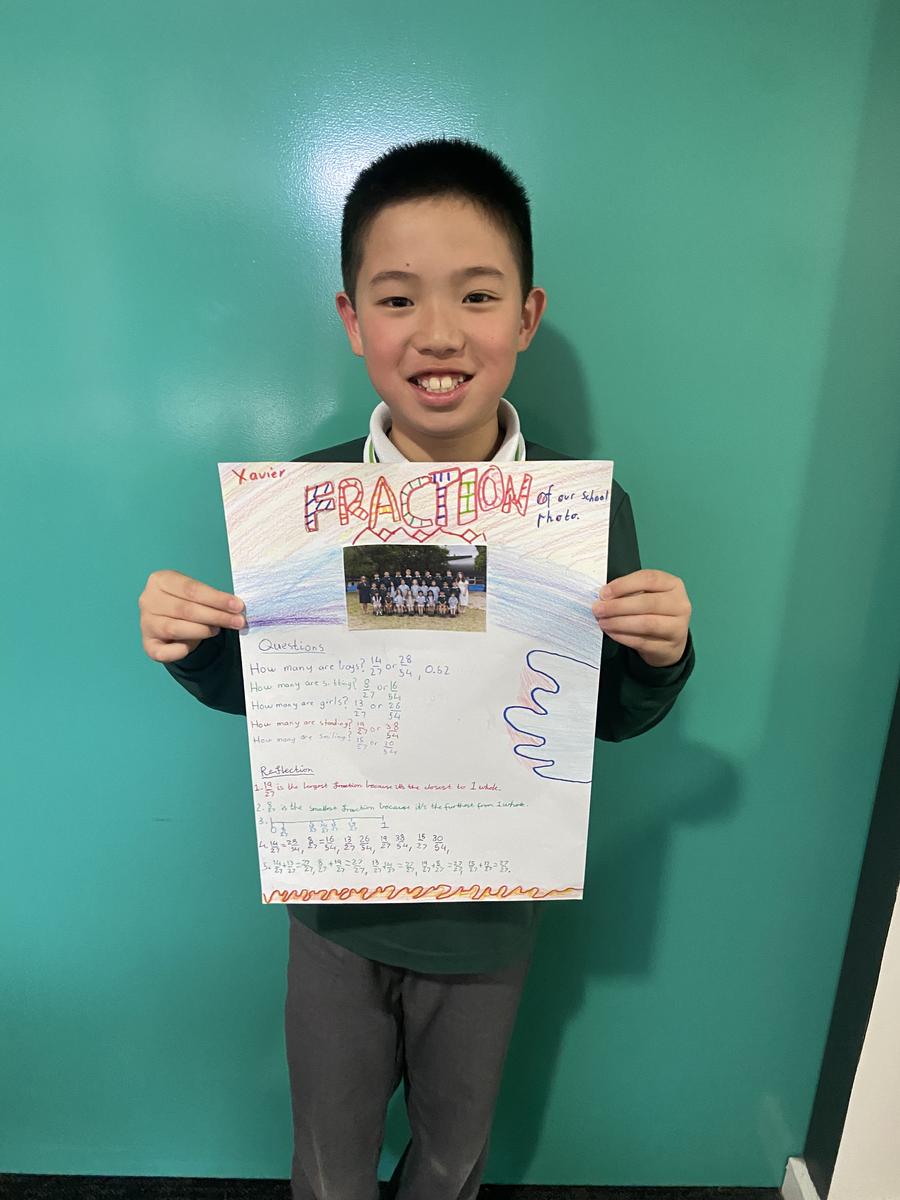 Xavier
FRACTION
of our school
photo.
Questions
How many are boys? 14/27 or 28/54, 0.52
How many are sitting? 8/27 or 16/54
How many are girls? 13/27 or 26/54
How many are standing? 19/27 or 38/54
How many are smiling? 15/27 or
Reflection
1. 19/27 is the largest fraction because it's the closest to 1 whole.
2. 8/27 is the smallest fraction because it's the furthest from 1 whole.
3. 0 1
4. 14/27=28/54, 8/27=16/54, 13/27 26/54, 19/27 38/54, 15/27 30/54,
5. 14/27+13/27=27/27, 8/27+19/27=27/27, 13/27+14/27=27/27, 19/27+8/27=27/27, 15/27+12/27=27/27.